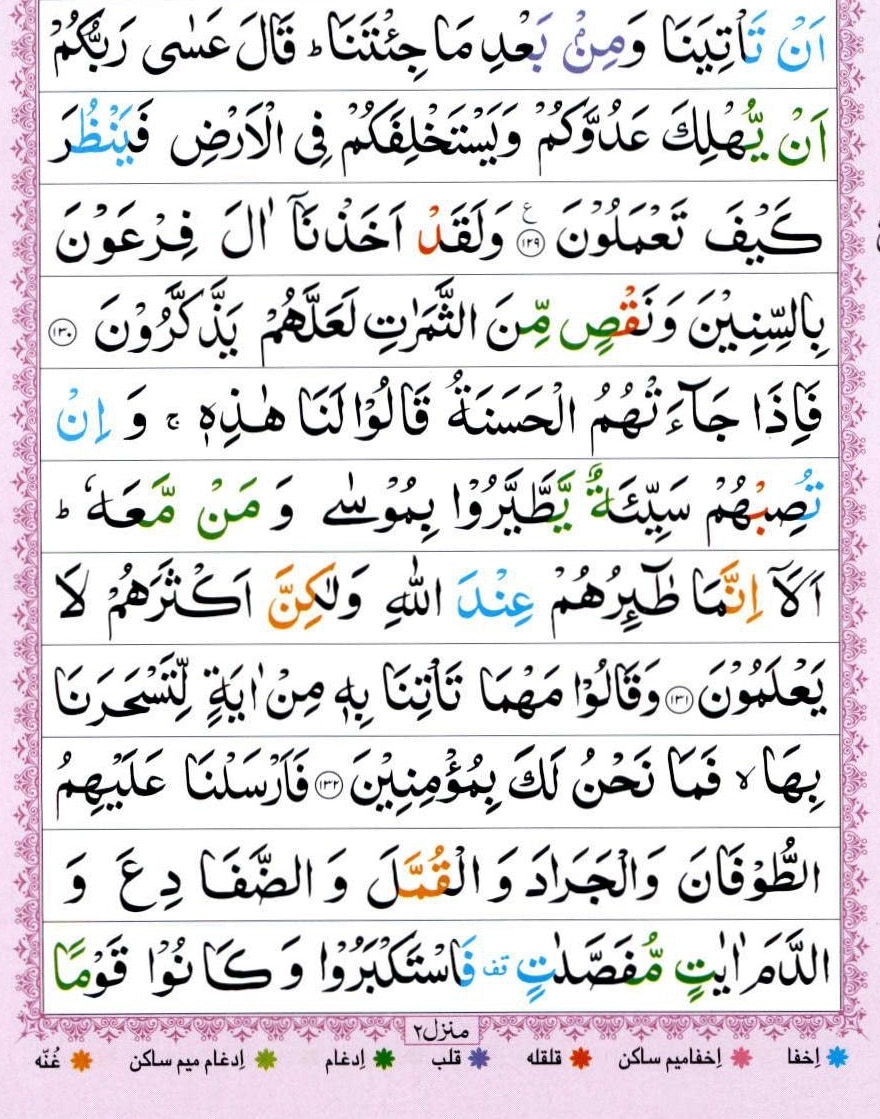 اَنْ تَاْتِيَنَا وَمِنْۢ بَعْدِ مَا جِئْتَنَا ؕ قَالَ عَسٰى رَبُّكُمْ
اَنْ يُّهْلِكَ عَدُوَّكُمْ وَيَسْتَخْلِفَكُمْ فِى الْاَرْضِ فَيَنْظُرَ
كَيْفَ تَعْمَلُوْنَ ۧ ﴿۱۲۹﴾ وَلَقَدْ اَخَذْنَاۤ اٰلَ فِرْعَوْنَ
بِالسِّنِيْنَ وَنَقْصٍ مِّنَ الثَّمَرٰتِ لَعَلَّهُمْ يَذَّكَّرُوْنَ ﴿۱۳۰﴾
فَاِذَا جَآءَتْهُمُ الْحَسَنَةُ قَالُوْا لَنَا هٰذِهٖ ۚ وَ اِنْ
تُصِبْهُمْ سَيِّئَةٌ يَّطَّيَّرُوْا بِمُوْسٰى وَ مَنْ مَّعَهٗ ؕ
اَلَاۤ اِنَّمَا طٰٓئِرُهُمْ عِنْدَ اللّٰهِ وَلٰكِنَّ اَكْثَرَهُمْ لَا
يَعْلَمُوْنَ ﴿۱۳۱﴾ وَقَالُوْا مَهْمَا تَاْتِنَا بِهٖ مِنْ اٰيَةٍ لِّتَسْحَرَنَا
بِهَا ۙ فَمَا نَحْنُ لَكَ بِمُؤْمِنِيْنَ ﴿۱۳۲﴾ فَاَرْسَلْنَا عَلَيْهِمُ
الطُّوْفَانَ وَالْجَرَادَ وَ الْقُمَّلَ وَ الضَّفَادِعَ وَ
الدَّمَ اٰيٰتٍ مُّفَصَّلٰتٍ قف فَاسْتَكْبَرُوْا وَ كَانُوْا قَوْمًا
منزل۲
اِخفا اِخفامیم ساکن قلقله قلب اِدغام اِدغام میم ساکن غُنّه